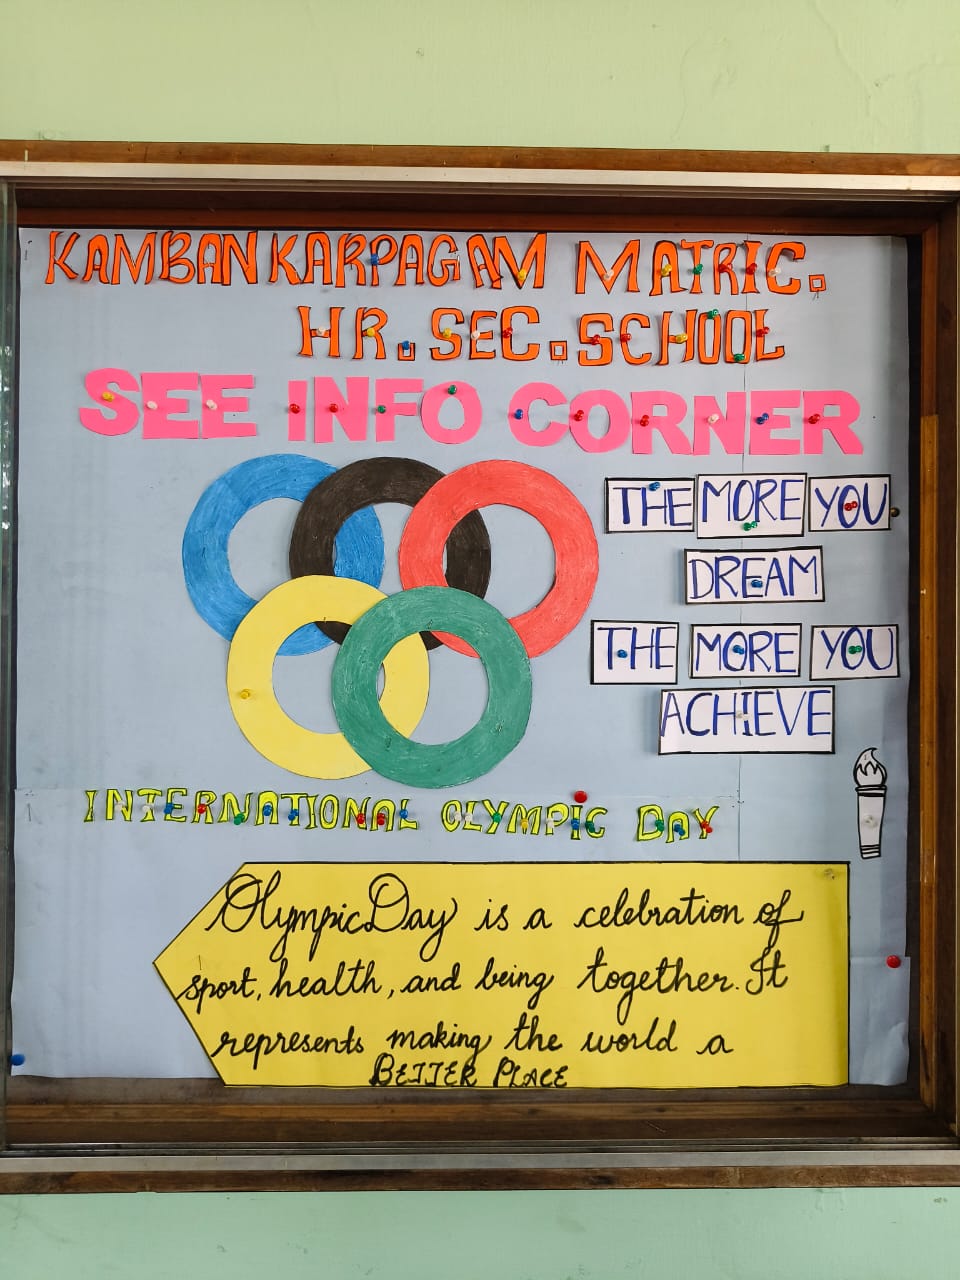 KAMBAN KARPAGAM MATRIC.
HR. SEC. SCHOOL
SEE INFO CORNER
THE MORE YOU
DREAM
THE MORE YOU
ACHIEVE
INTERNATIONAL OLYMPIC DAY
Olympic Day is a celebration of
sport, health, and being together. It
represents making the world a
BETTER PLACE